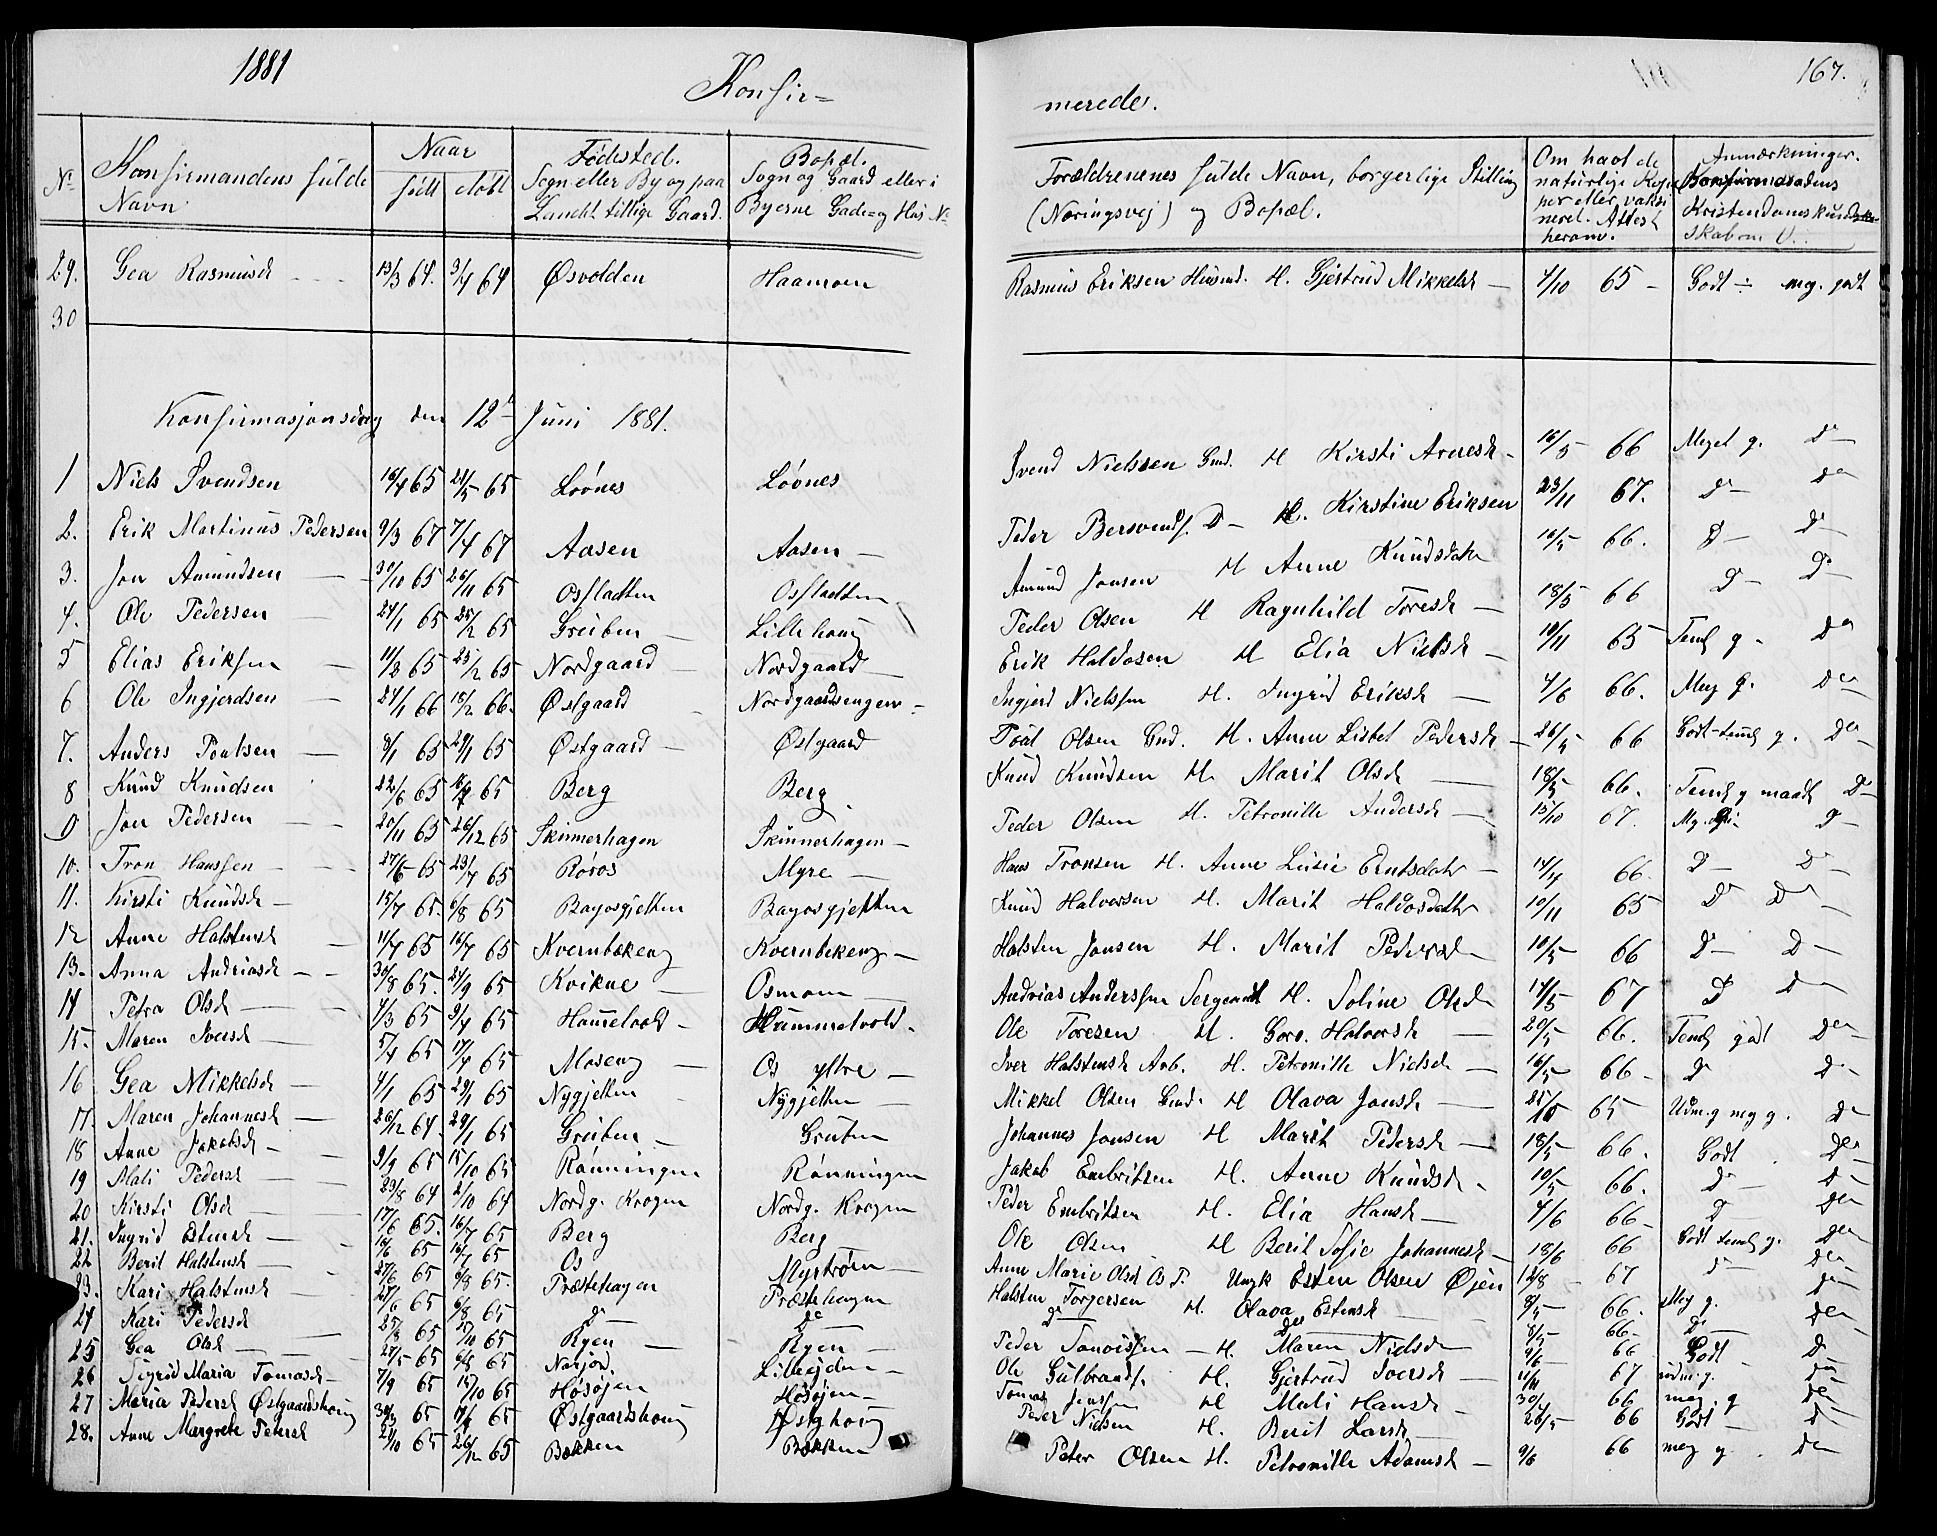 1881
Konfir=
merede.
167.
No
Konfirmandens fulde
Navn
Naar
født
døbt
Fødested.
Sogn eller By og paa
Landet tillige Gaard.
Bopæl.
Sogn og Gaard eller i
Byerne Gade og Hus No
Forældrenenes fulde Navn, borgerlige Stilling
(Næringsvej) og Bopæl.
Om havt de
naturlige Kop
per eller vaksi
neret. Attest
herom.
Anmærkninger.
Konfirmandens
Kristendomskund
skab m. V.
29. Gea Rasmusd 13/3 64. 3/4 64 Øsvolden Haamoen Rasmus Eriksen Husmd. H. Gjertrud Mikkelsd 4/10 65 Godt ÷ meg. godt
30
Konfirmasjonsdag den 12te Juni 1881.
1 Niels Svendsen 16/4 65 21/5 65 Løvnes Løvnes Svend Nielssen Gmd. H Kirsti Arnesd 16/5 66 Meget g. Do
2. Erik Martinus Pedersen 9/3 67 7/4 67 Aasen Aasen Peder Bersvends. Do H. Kirstine Eriksen 23/11 67. Do Do
3. Jon Amundsen 30/10 65 26/11 65 Osfladten Osfladten Amund Jonsen H Anne Knudsdatr 10/5 66. Do Do
4. Ole Pedersen 24/1 65 25/2 65 Gruben Lillehoug Peder Olsen H Ragnhild Toresd 18/5 66 Do Do
5 Elias Eriksen 11/2 65 25/2 65 Nordgaard Nordgaard Erik Haldosen H Elia Nielsd 10/11 65 Teml g. Do
6 Ole Ingjerdsen 24/1 66 18/2 66. Østgaard Nordgaardsengen Ingjerd Nielssen H. Ingrid Eriksd 4/6 66. Meg g. Do
7. Anders Poulsen 8/1 65 29/1 65 Østgaard Østgaard Poul Olsen Gmd. H. Anne Lisbet Pedersd 26/5 66 Godt-teml g. Do
8 Knud Knudsen 22/6 65 16/7 65 Berg Berg Knud Knudsen H. Marit Olsd 18/5 66. Teml g maadl Do
9 Jon Pedersen 20/11 65 26/12 65 Skinnerhagen Skinnerhagen Peder Olsen H. Petronille Andersd 15/10 67. Mg. g. Do
10. Tron Hanssen 27/6 65 23/7 65 Røros Myre Hans Tronsen H. Anne Lusie Erntsdatr 14/4 66. Do Do
11. Kirsti Knudsd 15/7 65. 6/8 65 Bagosgjetten Bagosgjetten Knud Halvorsen H. Marit Haldosdatr 10/11 65 Do Do
12 Anne Halstensd 11/7 65 16/7 65 Kvernbækeng Kvernbekeng Halsten Jonsen H. Marit Pedersd 10/5 66 Do Do
13. Anna Andriasd 30/8 65. 24/9 65 Kvikne Osmoen Andrias Anderssen Sergeant H. Soline Olsd 14/5 67 Do Do
14 Petra Olsd 4/3 65 9/4 65 Hammelvold Hummelvold Ole Toresen H. Goro. Halvorsd 20/5 66. Teml godt Do
15. Maren Iversd 5/4 65 17/4 65 Moseng Os ytre Iver Halstensd Arb. H. Petronille Nielsd 10/5 66 Do Do
16 Gea Mikkelsd 4/1 65 29/1 65 Nygjetten Nygjetten Mikkel Olsen Gmd. H Olava Jonsd 25/10 65 Udm. g meg g. Do
17. Maren Johannesd 26/12 64. 29/1 65 Gruben Gruben Johannes Jonsen H Marit Pedersd 18/5 66. Godt Do
18 Anne Jakobsd 3/9 65 15/10 65 Rønningen Rønningen Jakob Embritsen H. Anne Knudsd 10/5 66. Do Do
19 Mali Pedersd 23/8 64 2/10 64 Nordg. Krogen Nordg. Krogen Peder Embritsen H. Elia Hansd 4/6 66 Do Do
20 Kirsti Olsd 17/6 65. 16/7 65 Berg Berg Ole Olsen H Berit Sofie Johannesd 18/6 66 Godt teml g. Do
21. Ingrid Estensd 16/6 65 16/7 65 Os Myrstrøm Anne Marie Olsd Os P. Ungk Esten Olsen Øjen 14/8 67 Do Do
22 Berit Halstensd 27/6 65 6/8 65. Præstehagen Præstehagen Halsten Torgersen H. Olava Estensd 8/5 66. Meg g. Do
23. Kari Halstensd 27/6 65 6/8 65 Do Do Do Do 8/5 66 Do Do
24 Kari Pedersd 65 65 Ryen Ryen Peder H. Maren Nielsd 9/6 66 Godt Do
25 Gea Olsd 27/5 65 65 Narjord. Lillejden Ole Gulbrands. H. Gjertrud Iversd 67 udm. g. Do
26 Sigrid Maria Tomasd 7/9 65 15/10 65 Høsøjen Høsøjen Tomas Jenssen H Mali Hansd 66 meg g Do
27 Maria Pedersd Østgaardshoug 65 65 Østgaardshoug Østghoug Peder Nielsen H. Berit Larsd 26/5 66 Godt Do
28. Anne Margrete Petersd 21/10 65 26/12 65 Bækken Bækken Peter Olsen H. Petronille Adamsd 9/6 66 meg g. Do